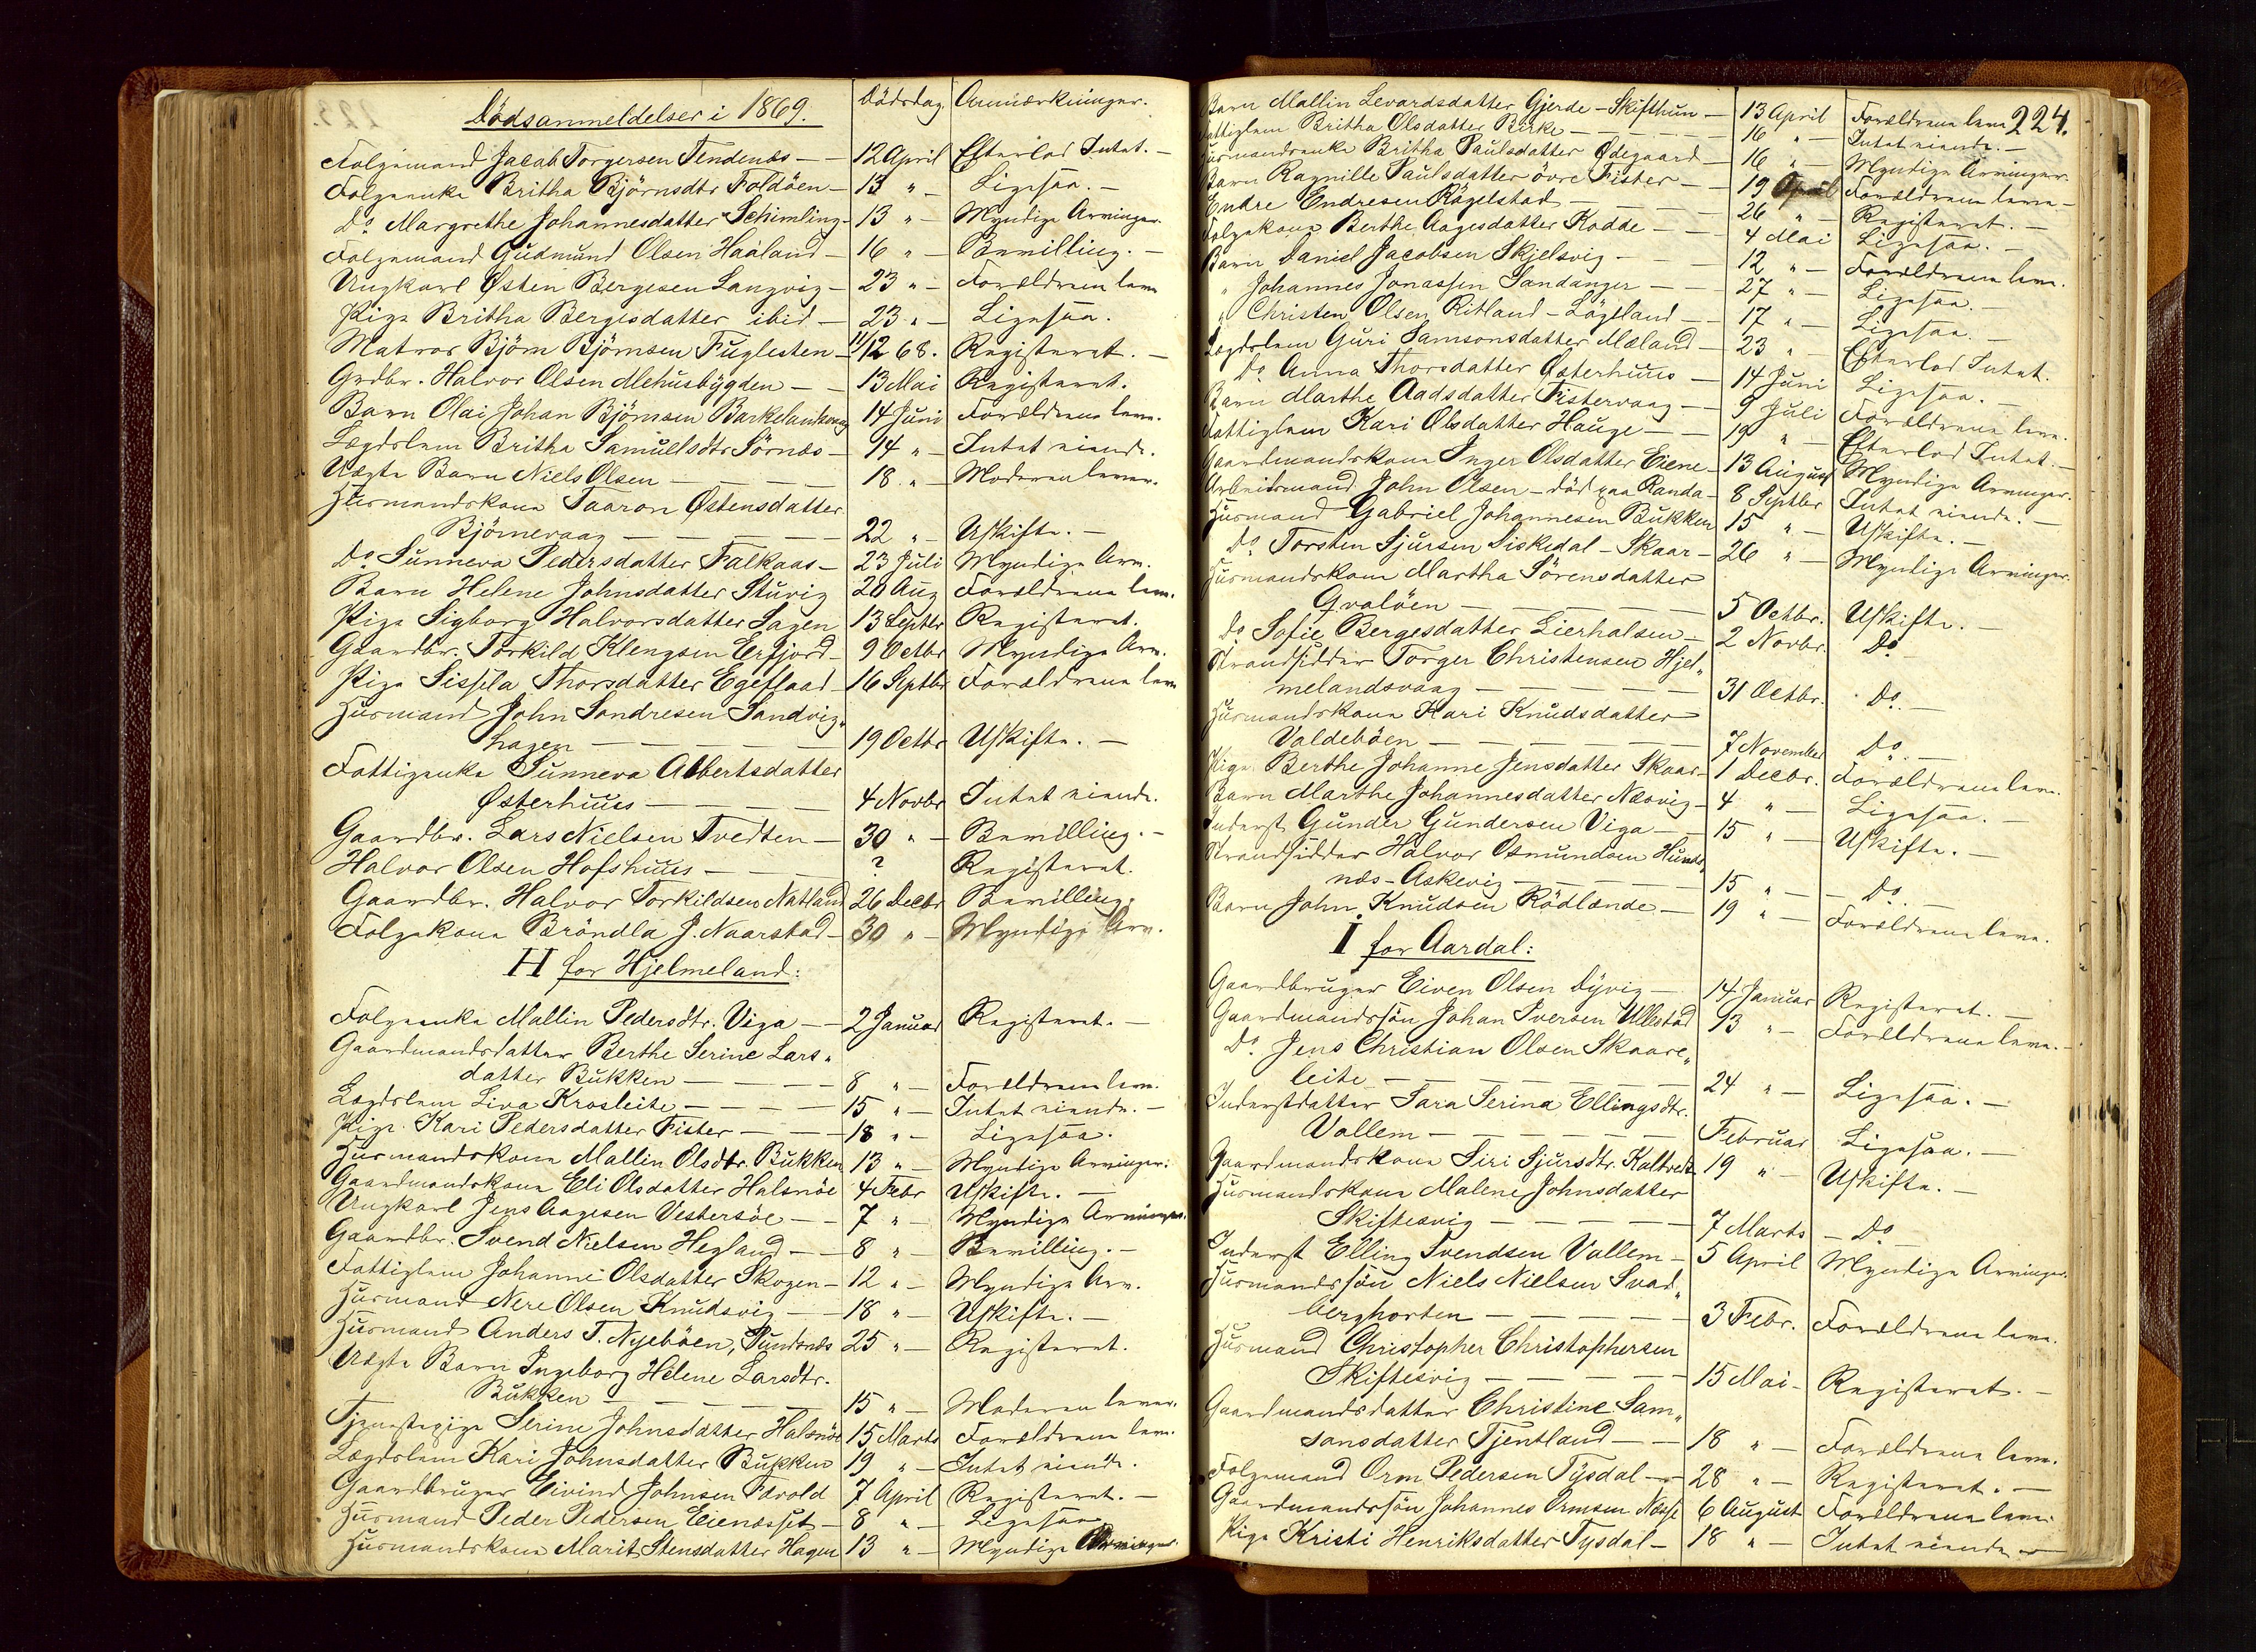 Dödsanmeldelser i 1869. Dödsdag Anmærkninger.
Folgemand Jacob Torgersen Tendenæs — 12 April Efterlod Intet. —
Folgeenke Britha Björnsdtr Foldöen — 13 " — Ligesaa. —
Do Margrethe Johannesdatter Schimling — 13 " — Myndige Arvinger.
Folgemand Gudmund Olsen Haaland — 16 " — Bevilling. —
Ungkarl Østen Bergesen Langvig — 23 " — Forældrene leve
Pige Britha Bergesdatter ibid — 23 " — Ligesaa.
Matros Björn Björnsen Fuglesten — 11/12 68. Registeret. —
Grdbr. Halvor Olsen Mehusbygden — 13 Mai Registeret.
Barn Olai Johan Björnsen 14 Juni Forældrene leve.
Lægdslem Britha Samuelsdtr Sörnæs — 14 " — Intet eiende.
Uægte Barn Niels Olsen — 18 " — Moderen lever.
Huusmandskone Taaron Østensdatter
Björnevaag — 22 " — Uskifte. —
Do Sunneva Pedersdatter Falkaas — 23 Juli Myndige Arv.
Barn Helene Johnsdatter Stuvig 20 Aug Forældrene leve.
Pige Sigborg Halvorsdatter Sagen 13 Septbr Registeret.
Gaardbr. Torkild Klengsen Erfjord — 9 Octbr Myndige Arv.
Pige Sissela Thorsdatter Egeflaad — 16 Septbr Forældrene leve
Huusmand John Sondresen Sandvig„
hagen — 19 Octbr Uskifte. —
Fattigenke Sunneva Albertsdatter
Østerhuus — 4 Novbr Intet eiende.
Gaardbr. Lars Nielsen Tvedten — 30 " — Bevilling. —
Halvor Olsen Hofshuus — ? Registeret.
Gaardbr. Halvor Torkildsen Natland 26 Decbr Bevilling.
Folgekone Bröndla J. Naarstad — 30 " — Myndige Arv.
H for Hjelmeland:
Folgeenke Mallin Pedersdtr. Viga — 2 Januar Registeret. —
Gaardmandsdatter Berthe Serine Lars„
datter Bukken — 8 " — Forældrene leve.
Lægdslem Siva Krosleite — 15 " — Intet eiende. —
Pige Kari Pedersdatter Fister — 18 " — Ligesaa.
Huusmandskone Mallin Olsdtr. Bukken 13 " — Myndige Arvinger.
Gaardmandskone Eli Olsdatter Halsnöe 4 Febr Uskifte. —
Ungkarl Jens Aagesen Vestersöe — 7 " — Myndige Arvinger.
Gaardbr. Svend Nielsen Hegland — 8 " — Bevilling. —
Fattiglem Johanne Olsdatter Skogen — 12 " — Myndige Arv.
Huusmand Nere Olsen Knudsvig — 18 " — Uskifte. —
Huusmand Anders T. Nyeböen, Pundsnæs 25 " — Registeret.
Uægte Barn Ingeborg Helene Larsdtr.
Bukken — 15 " — Moderen lever.
Tjenestepige Serine Johnsdatter Halsnöe 15 Marts Forældrene leve.
Lægdslem Kari Johnsdatter Bukken 19 " — Intet eiende.
Gaardbruger Eivind Johnsen Færold 7 April Registeret. —
Huusmand Peder Pedersen Eienæsset — 8 " — Ligesaa
Huusmandskone Marit Stensdatter Hagen 13 " — Myndige Arvinger.
224.
Barn Mallin Levardsdatter Gjerde — Skifthun — 13 April Forældrene leve
Fattiglem Britha Olsdatter Birke — 16 " Intet eiende. —
Huusmandsenke Britha Paulsdatter Ødegaard — 16 " — Myndige Arvinger.
Barn Ragnille Paulsdatter övre Fister — 19 April Forældrene leve —
Endre Endresen Rögelstad — 26 " — Registeret. —
Folgekone Berthe Aagesdatter Kodde — 4 Mai Ligesaa. —
Barn Daniel Jacobsen Skjelsvig — 12 " — Forældrene leve.
" Johannes Jonassen Sandanger — 27 " — Ligesaa. —
" Christen Olsen Ritland — Lögeland — 17 " — Ligesaa. —
Lægdslem Guri Samsonsdatter Mæland — 23 " — Efterlod Intet.
Do Anna Thorsdatter Østerhuus — 14 Juni Ligesaa. —
Barn Marthe Aadsdatter Fistervaag — 9 Juli Forældrene leve.
Fattiglem Kari Olsdatter Hauge — 19 " — Efterlod Intet. —
Gaardmandskone Inger Olsdatter Eiene — 13 August Myndige Arvinger.
Arbeidsmand John Olsen — död paa Randa — 8 Septbr Intet eiende. —
Huusmand Gabriel Johannesen Bukken 15 " — Uskifte. —
Do Torsten Sjursen Siskedal — Skaar — 26 " — Myndige Arvinger.
Huusmandskone Martha Sörensdatter
Qvalöen — 5 Octbr. Uskifte. —
Do Sofie Bergesdatter Lierhalsen — 2 Novbr. Do
Strandsidder Torger Christensen Hjel„
melandsvaag — 31 Octbr. Do. —
Huusmandskone Kari Knudsdatter
Valdeböen — 7 November Do. —
Pige Berthe Johanne Jensdatter Skaar — 1 Decbr. Forældrene leve.
Barn Marthe Johannesdatter Næsvig — 4 " — Ligesaa. —
Inderst Gunder Gundersen Viga — 15 " — Uskifte. —
Strandsidder Halvor Osmundsen Hunds„
næs — Askevig — 15 " — Do. —
Barn John Knudsen Rödlende — 19 " — Forældrene leve.
I for Aardal:
Gaardbruger Eiven Olsen Dyvig — 14 Januar Registeret. —
Gaardmandssön Johan Iversen Ullestad 13 " — Forældrene leve. —
Do Jens Christian Olsen Skaare„
leite — 24 " — Ligesaa. —
Inderstdatter Sara Serina Ellingsdtr.
Vallem — Februar Ligesaa. —
Gaardmandskone Siri Sjursdtr. Kaltvedt 19 " — Uskifte. —
Huusmandskone Malene Johnsdatter
Skiftesvig — 7 Marts — Do —
Inderst Elling Svendsen Vallem — 5 April Myndige Arvinger.
Huusmandssön Niels Nielsen Svad„
berghorten — 3 Febr. Forældrene leve.
Huusmand Christopher Christophersen
Skiftesvig — 15 Mai — Registeret. —
Gaardmandsdatter Christine Sam„
sonsdatter Tjentland — 18 " — Forældrene leve.
Folgemand Orm Pedersen Tysdal — 28 " — Registeret. —
Gaardmandssön Johannes Ormsen Næsse 6 August Forældrene leve.
Pige Kristi Henriksdatter Tysdal — 18 " — Intet eiende —